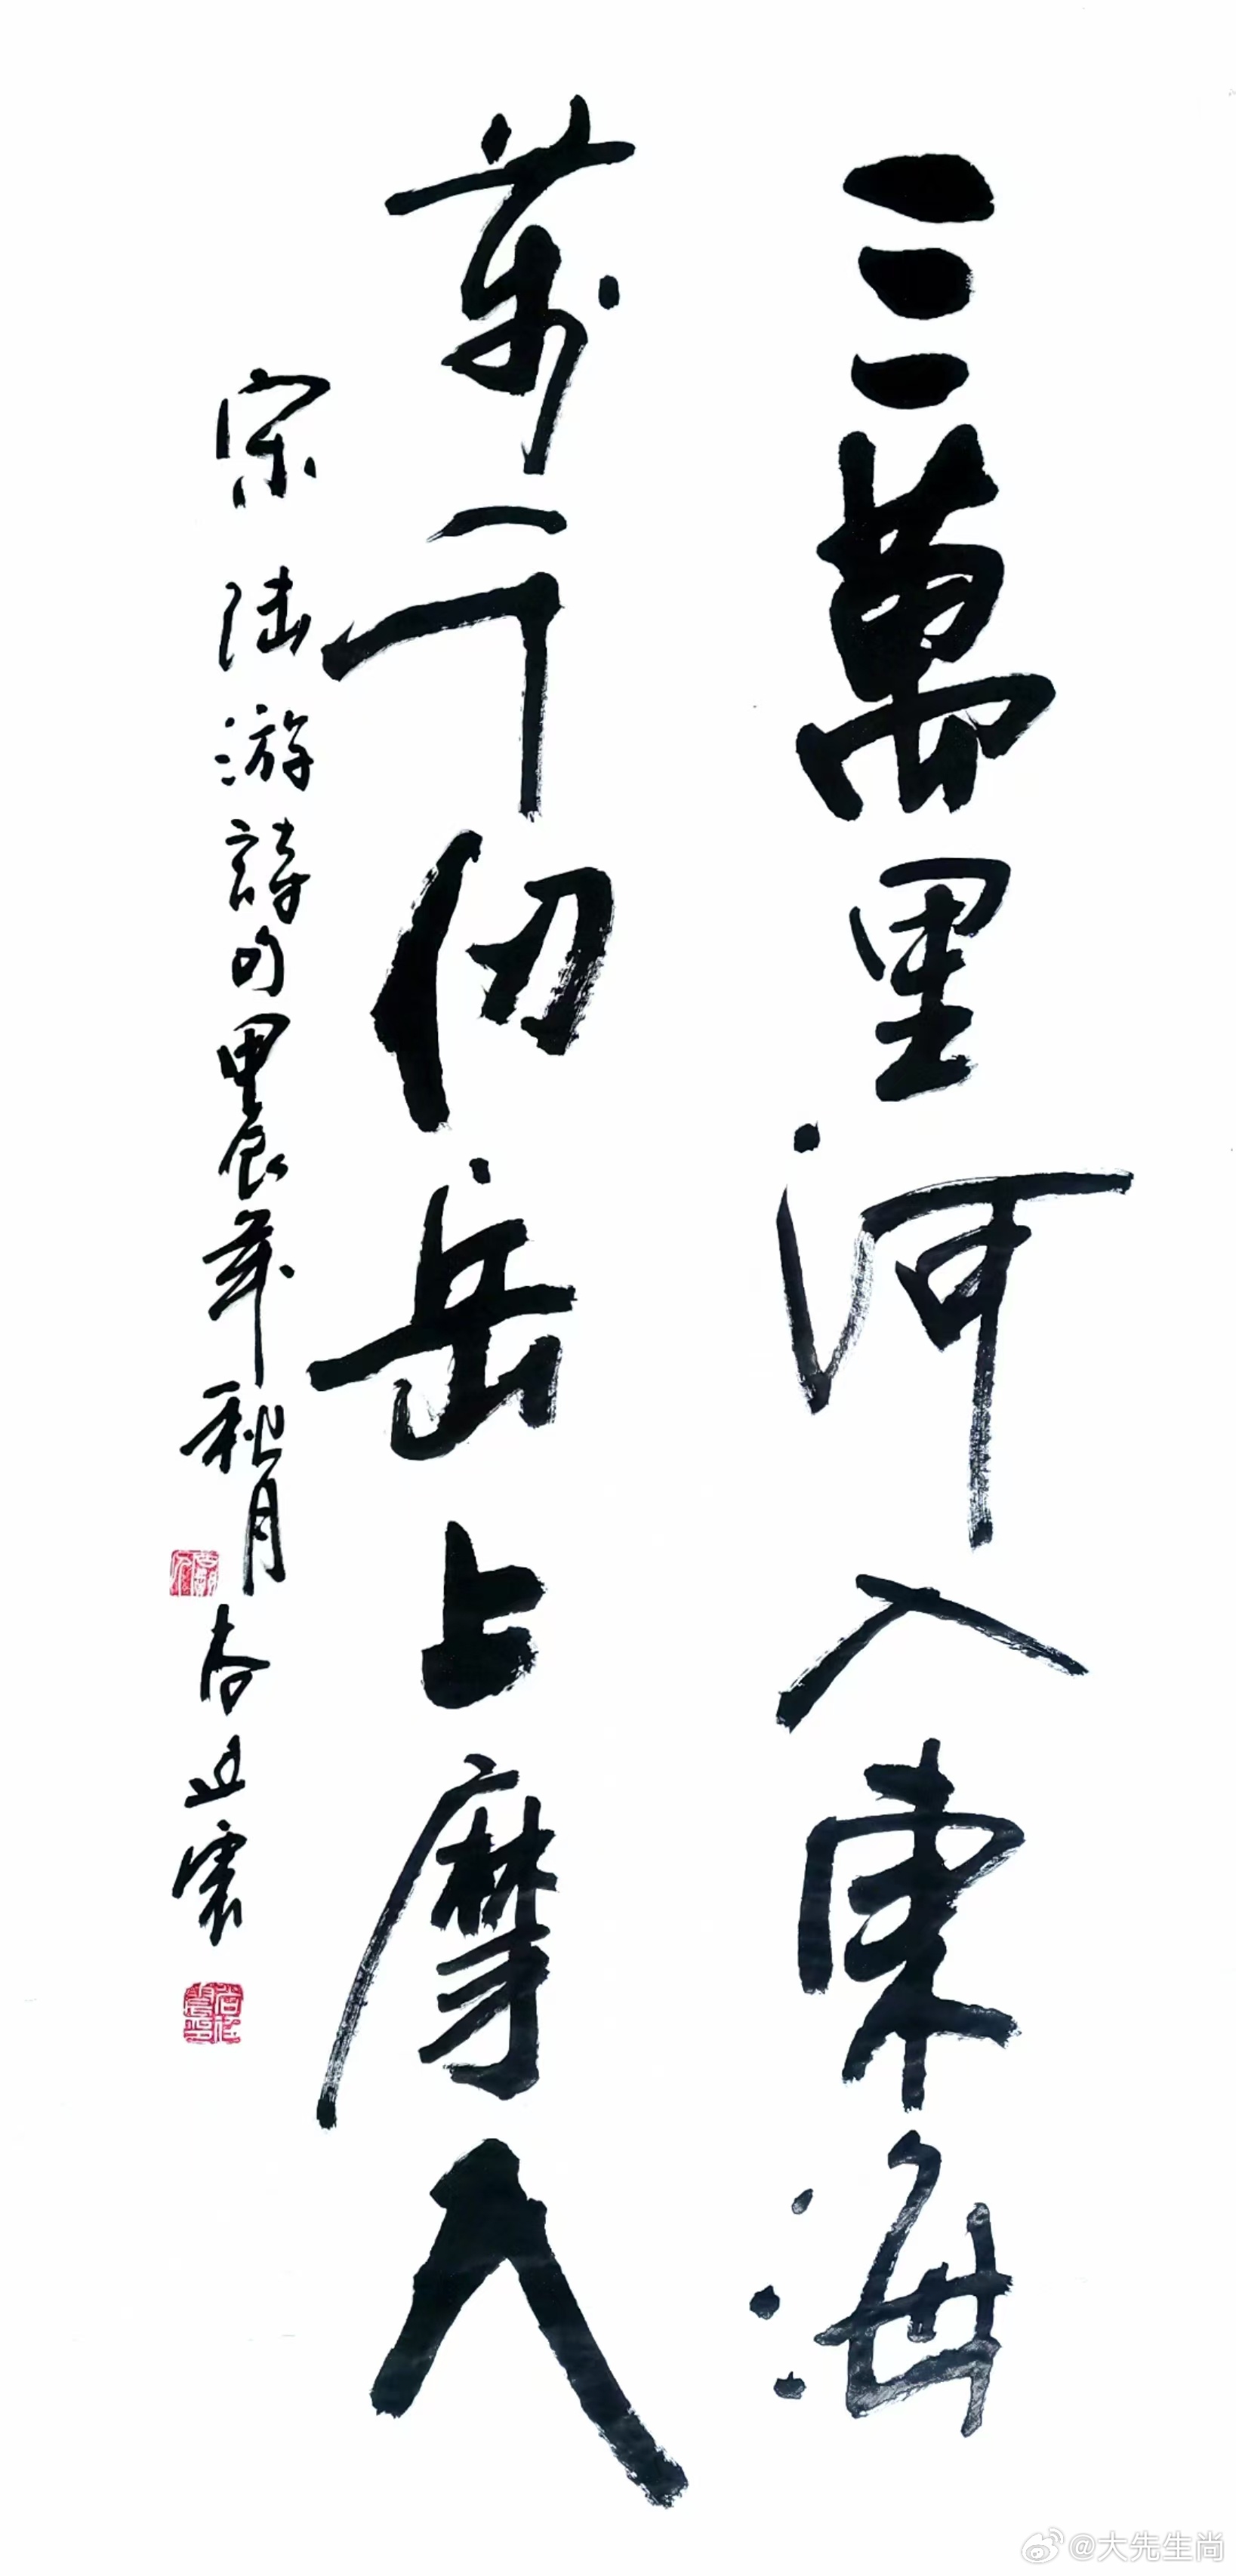 三萬里河入東海
萬千仞岳上摩人
宋陆游詩句甲辰年秋月
@大先生尚